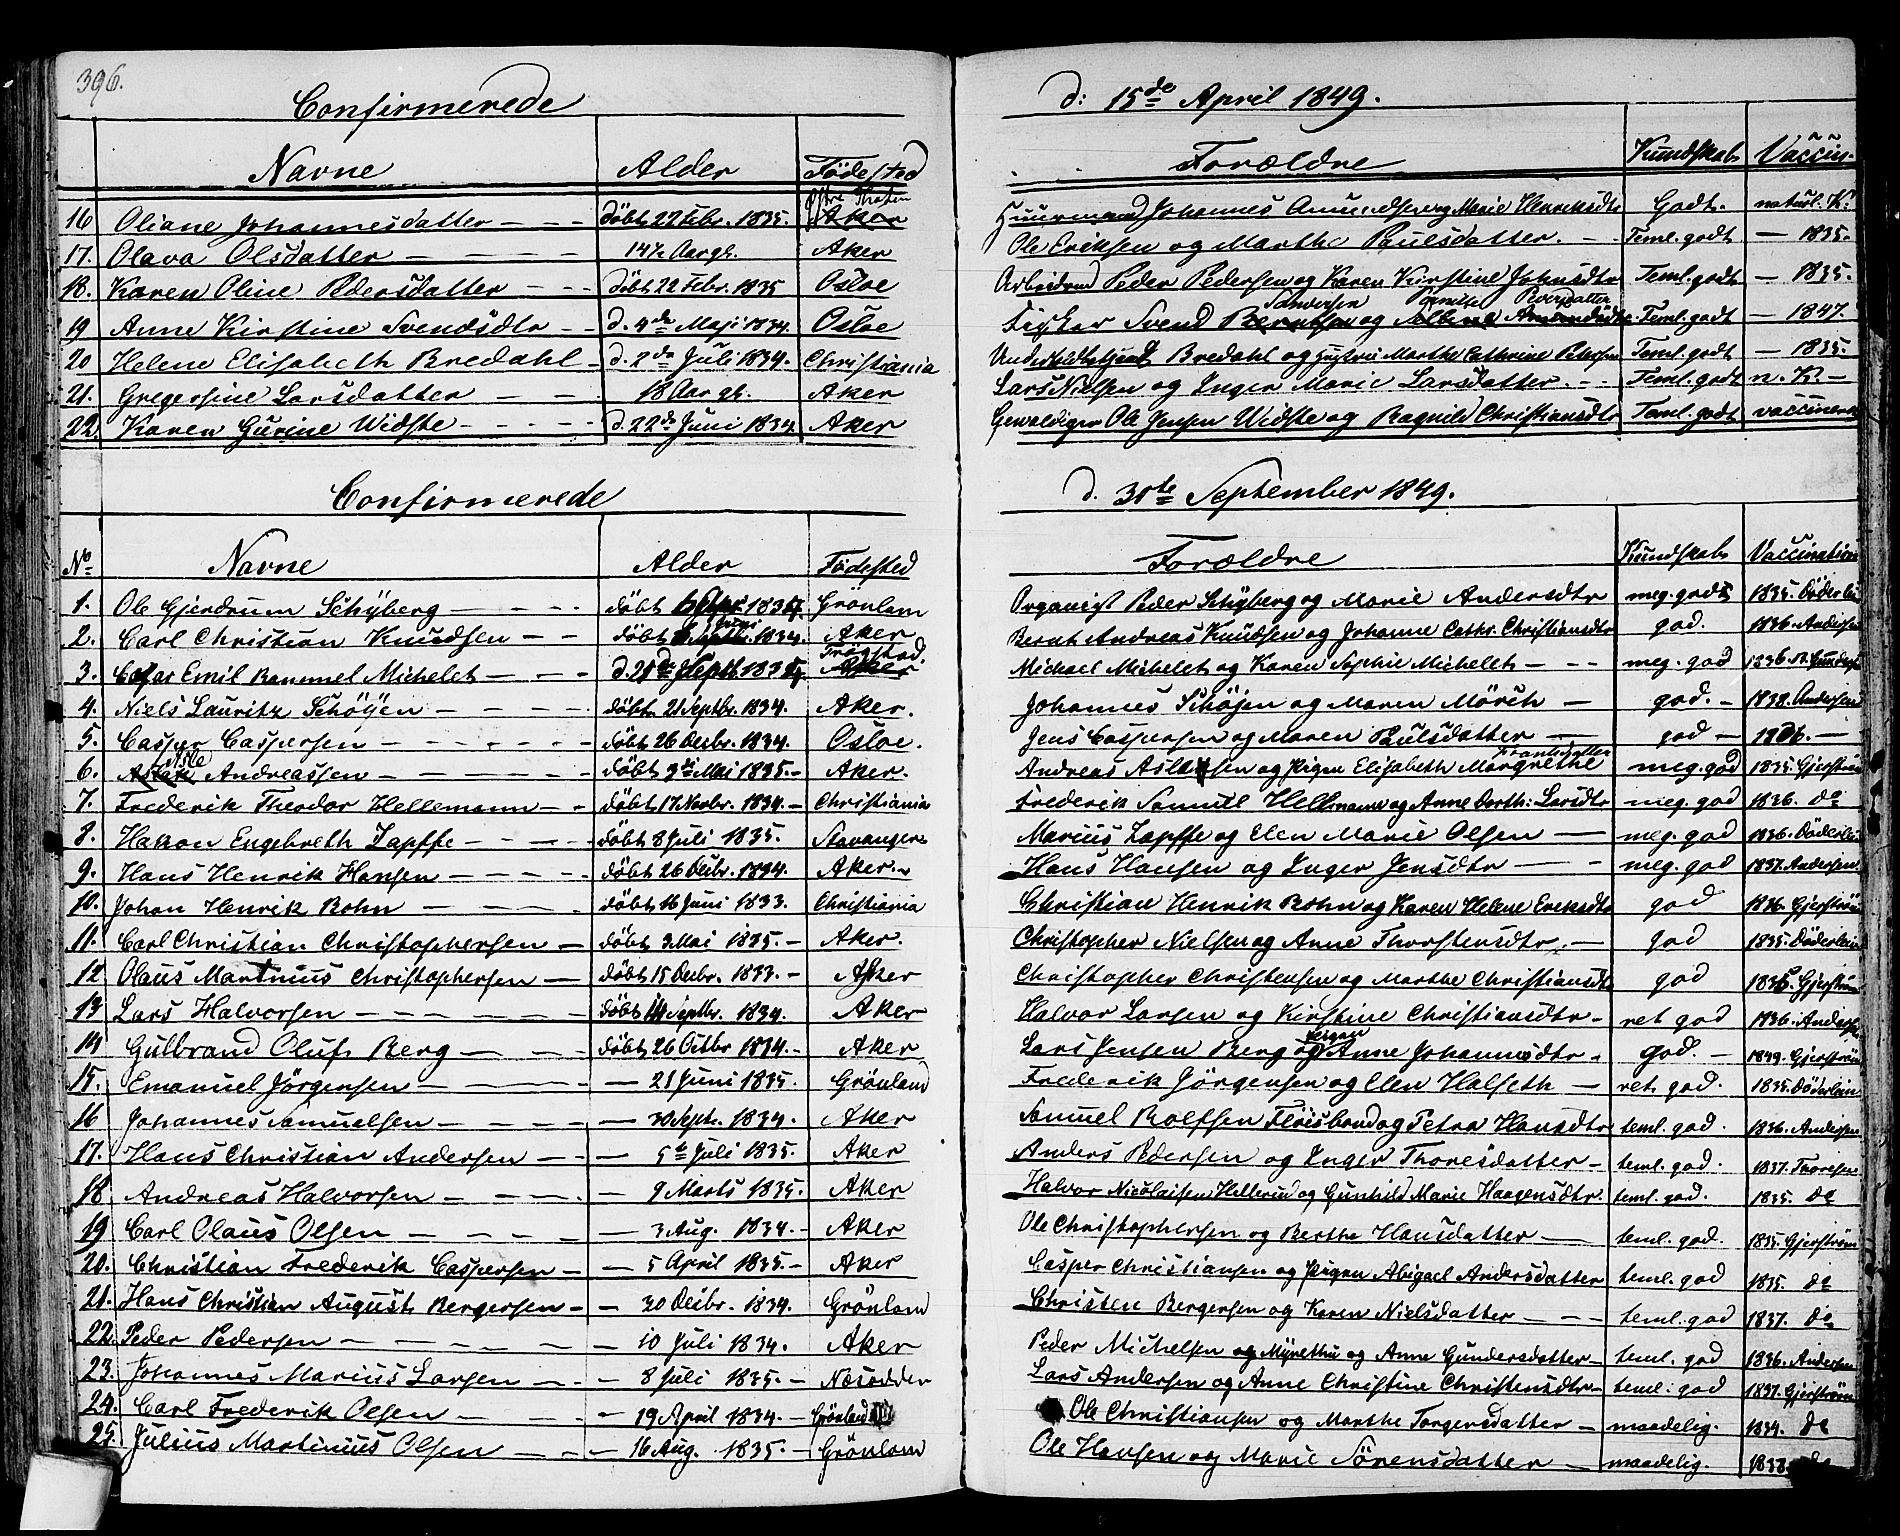 396.
Confirmerede d: 15de April 1849.
Navne Alder Födested Forældre Kundskab Vaccin.
Östre Thoten
16 Oliane Johannesdatter döbt 22 Febr. 1835. Aker Huusmand Johannes Amundsen og Marie Henriksdtr Godt. naturl. K.
17. Olava Olsdatter 14½ Aar gl. Aker Ole Eriksen og Marthe Paulsdatter. Teml. godt — 1835.
18. Karen Oline Pedersdatter döbt 22 Febr. 1835 Osloe Arbeidsmd Peder Pedersen og Karen Kirstine Johnsdtr Teml. godt — 1835.
Sandersen Pernille Pedersdatter
19 Anne Kirstine Svendsdtr d. 4de Maji 1834. Osloe Fisker Svend Berntsen og Teml. godt — 1847.
20 Helene Elisabeth Bredahl d. 2den Juli 1834. Christiania Bredahl og Hustru Marthe Cathrine Petersen Teml. godt — 1835.
21. Gregersine Larsdatter 18 Aar gl. Aker Lars Nielsen og Inger Marie Larsdatter. Teml. godt n. K. —
22. Karen Gurine Widste d. 22de Juni 1834. Aker Gewaldiger Ole Jensen Widste og Ragnild Christiansdtr Teml. godt vaccinered
Confirmerede d. 30te September 1849.
No Navne Alder Födested Forældre Kundskab Vaccination
1. Ole Gjerdrum Schyberg döbt 1834 Grönland Organist Peder Schyberg og Marie Andersdtr meg. godt 1835. Döderlein
2. Carl Christian Knudsen döbt 1834. Aker Bernt Andreas Knudsen og Johanne Cathr. Christiansdtr god. 1836. Andersen
Trögstad.
3. Emil Rammel Michelet d. 21de Septbr 1834 Aker Michael Michelet og Karen Sophie Michelet meg. god 1836.
4. Niels Lauritz Schöyen döbt 21 Septbr. 1834. Aker. Johannes Schöjen og Maren Mörch god. 1838. Andersen
5. Casper Caspersen döbt 26 Decbr. 1834. Osloe. Jens Caspersen og Maren Paulsdatter god 1836.
Asle Frantsdatter
6. Aslak Andreassen döbt 3de Mai 1835. Aker. Andreas Aslaksen og Pigen Elisabeth Margrethe meg. god 1835. Gjerström
7. Frederik Theodor Hellemann döbt 17 Novbr. 1834. Christiania Frederik Samuel Hellemann og Anne Dorth: Larsdtr meg. god 1836. do
8. Hakon Engebreth Zapffe döbt 8 Juli 1835. Stavanger Marius Zapffe og Elen Marie Olsen meg. god 1836. Döderlein
9. Hans Henrik Hansen döbt 26 Decbr. 1834. Aker. Hans Hansen og Inger Jensdtr meg. god 1837. Andersen.
10. Johan Henrik Bohn döbt 16 Juni 1833. Christiania Christian Henrik Bohn og Karen Helene Eriksdtr god 1836. Gjerström
11. Carl Christian Christophersen döbt 3 Mai 1835. Aker. Christopher Nielsen og Anne Thorstensdtr. god 1835. Döderlein
12 Olaus Martinius Christophersen döbt 15 Decbr. 1833. Aker Christopher Christensen og Marthe Christiansdtr god 1835. Gjerström
13 Lars Halvorsen döbt 14 Septbr. 1834. Aker Halvor Larsen og Kirstine Christiansdtr ret god 1836. Andersen
Jörgine
14 Gulbrand Oluf Berg döbt 26 Octbr 1834. Aker Lars Jensen Berg og Anne Johannesdtr god. 1849. Gjerström
15. Emanuel Jörgensen — 21 Juni 1835. Grönland Frederik Jörgensen og Elen Halseth ret god. 1835. Döderlein
16 Johannes Samuelsen — 30 Sept. 1834. Aker Samuel Rolfsen Flöisbond og Petra Hansdtr teml. god. 1836. Andersen
17. Hans Christian Andersen — 5te Juli 1835. Aker Anders Pedersen og Inger Thoresdatter teml. god. 1837. Thoresen
18 Andreas Halvorsen — 9 Marts 1835. Aker Halvor Nicolaisen Hellerud og Gunhild Marie Haagensdtr. teml. god. 1835. do
19 Carl Olaus Olsen — 3 Aug. 1834. Aker Ole Christophersen og Berthe Hansdatter teml. god. 1835. Gjerström
20. Christian Frederik Caspersen — 5 April 1835. Aker Casper Christiansen og Pigen Abigael Andersdatter teml. god 1835. do
21. Hans Christian August Bergersen — 30 Decbr. 1834. Grönland Christen Bergersen og Karen Nielsdatter teml. god 1837. do
22. Peder Pedersen — 10 Juli 1834. Aker Peder Michelsen og Anne Gundersdatter teml. god 1836. Andersen
23. Johannes Marius Larsen — 8 Juli 1835. Næsodden Lars Andersen og Anne Christine Christensdtr teml. god 1837. Gjerström
24. Carl Frederik Olsen — 19 April 1834. Grönland Ole Christiansen og Marthe Torgersdatter maadelig. 1834. do
25. Julius Martinius Olsen — 16 Aug. 1835. Grönland Ole Hansen og Marie Sörensdatter maadelig. 1838. do